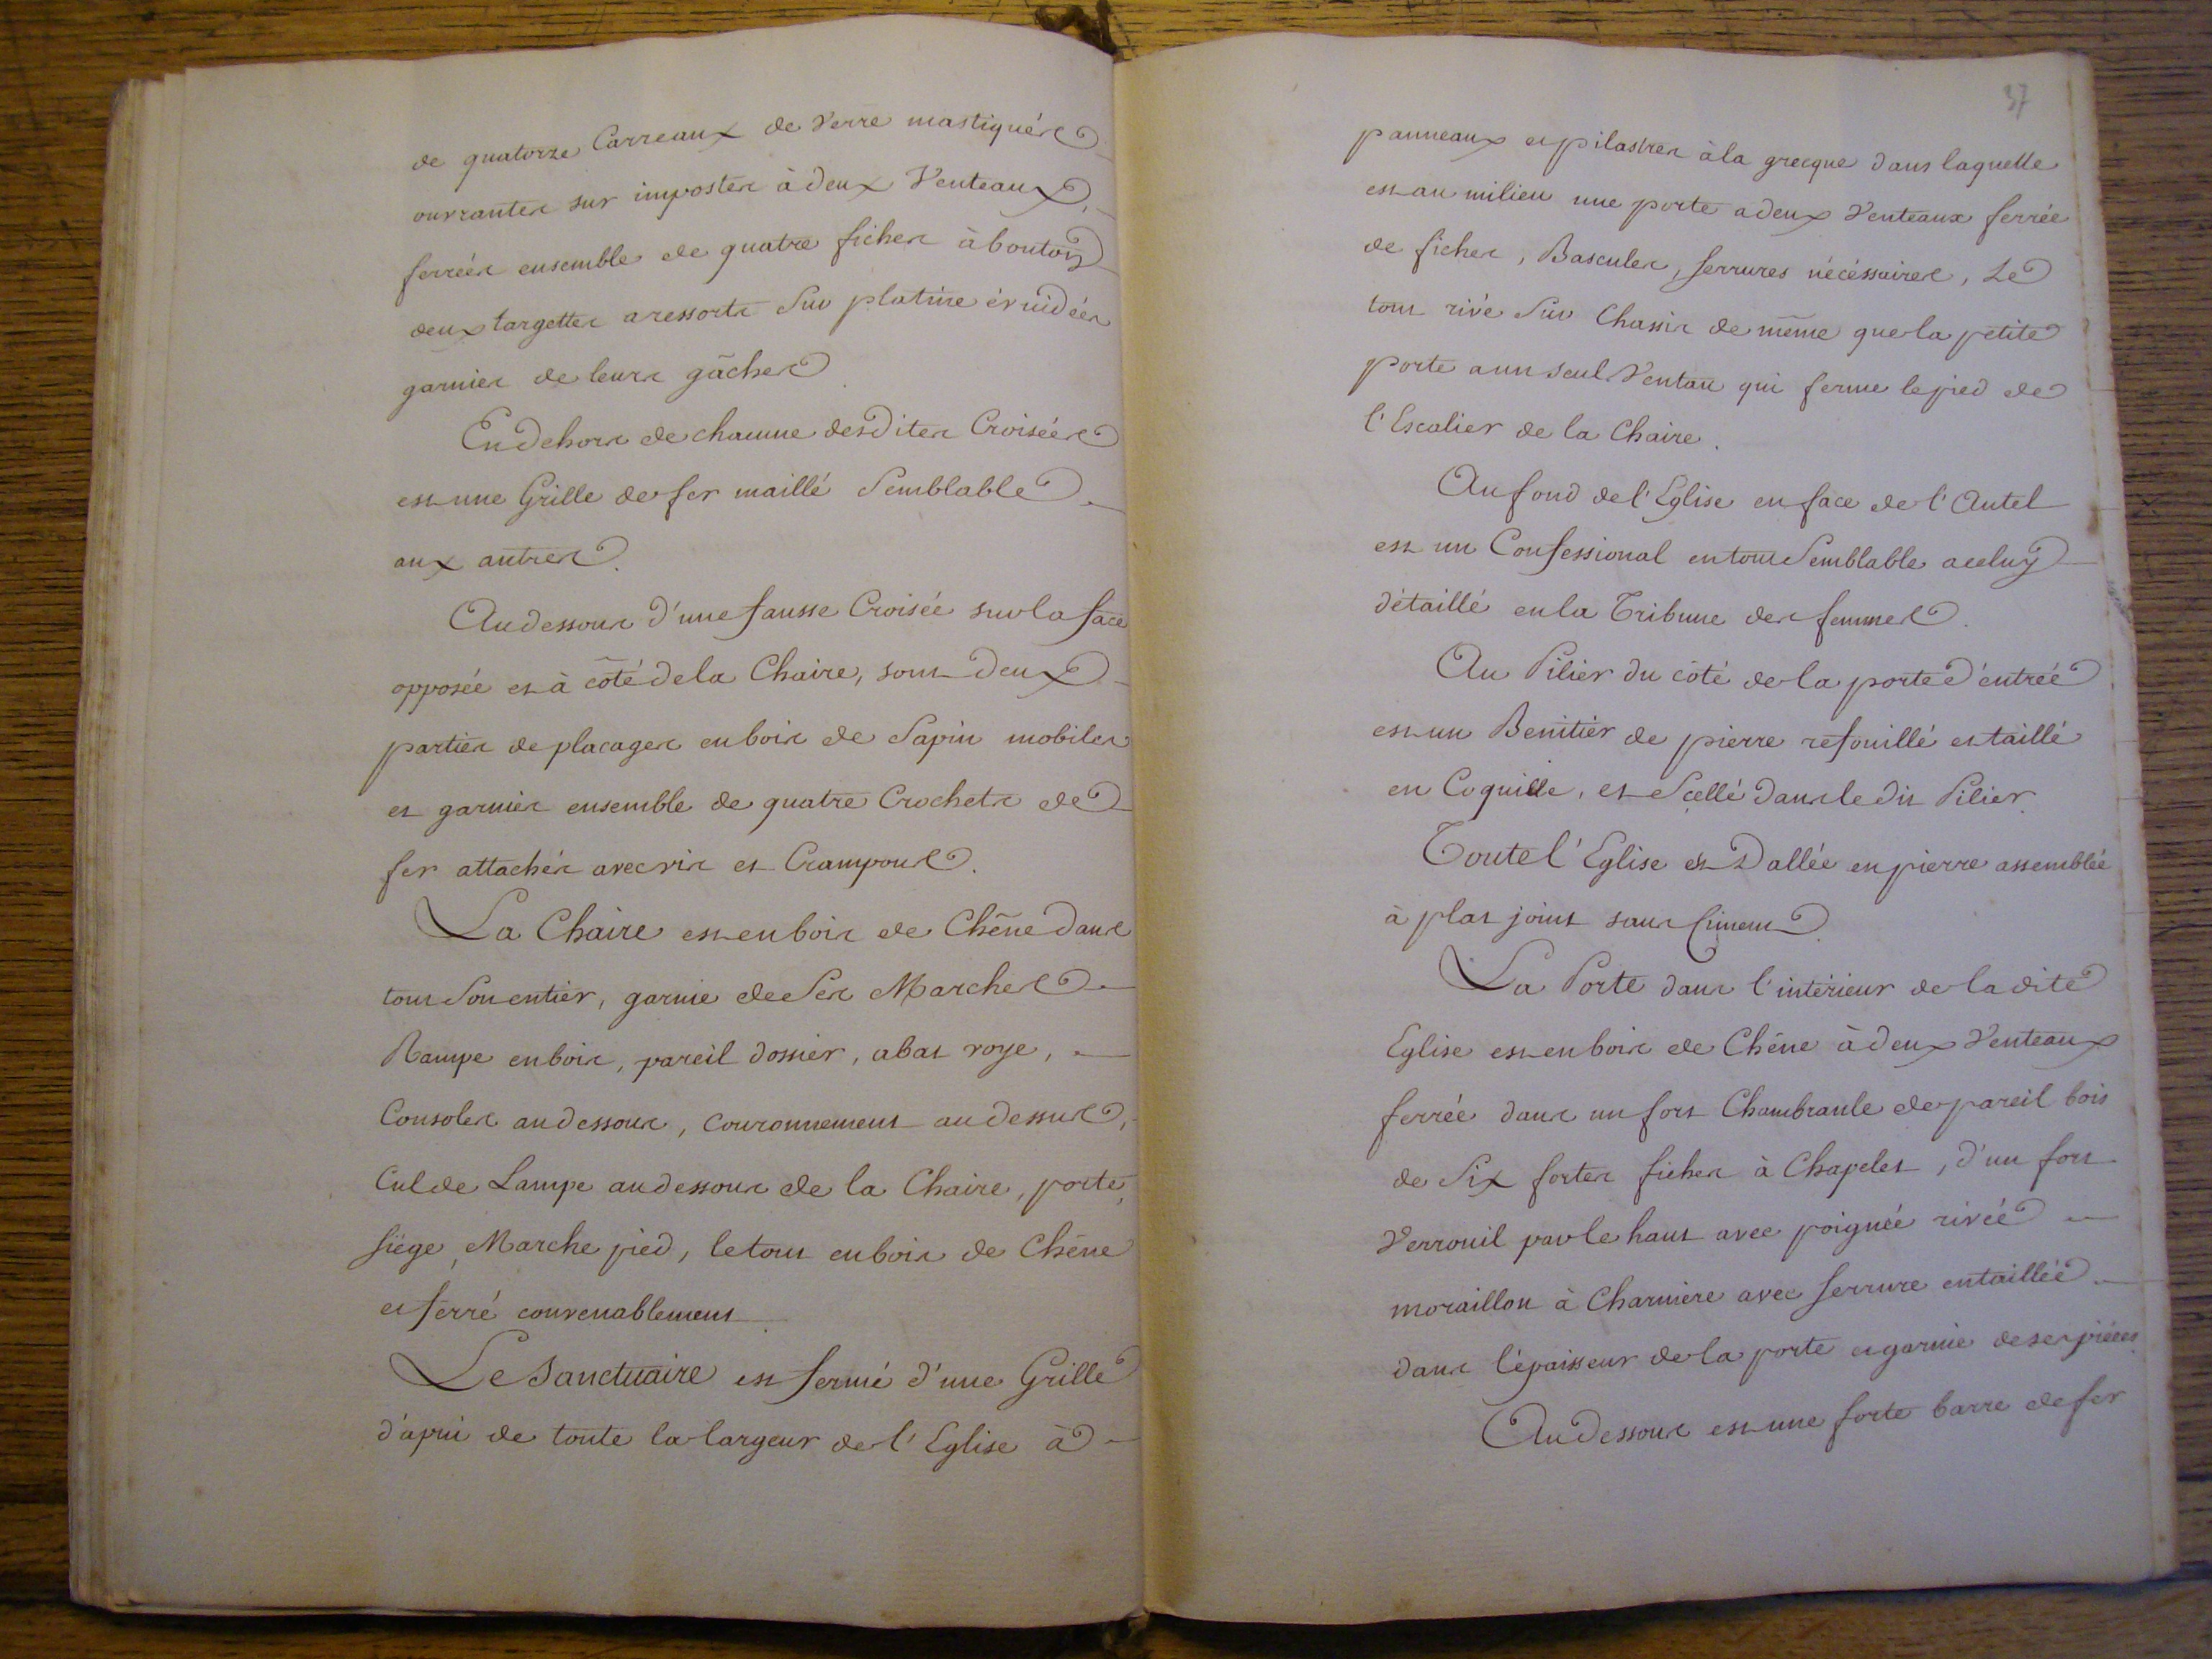 de quatorze Carreaux de Verre mastiqués
ouvrantes sur impostes à deux Venteaux,
ferrées ensemble de quatre fiches à bouton
deux targettes a ressorts Sur platine évuidées
garnies de leurs gâches.
En dehors de chacune desdites Croisées
est une Grille de fer maillé Semblable
aux autres.
Au dessous d'une fausse Croisée sur la face
opposée et à côté de la Chaire, sont deux
parties de placages en bois de Sapin mobiles
et garnies ensemble de quatre Crochets de
fer attachés avec vis et Crampons.
La Chaire est en bois de Chêne dans
tout Son entier, garnie de Ses Marches
Rampe en bois, pareil dossier, abat voye,
Consoles au dessous, couronnement au dessus,
Cul de Lampe au dessous de la Chaire, porte,
siège, Marche pied, le tout en bois de Chêne
et ferré convenablement.
Le Sanctuaire est fermé d'une Grille
d'apui de toute la largeur de l'Eglise à
37
panneaux et pilastres à la grecque dans laquelle
est au milieu une porte a deux Venteaux ferrée
de fiches, Bascules, serrures nécéssaires, Le
tout rivé Sur Chassis de même que la petite
porte a un seul Ventau qui ferme le pied de
l'Escalier de la Chaire.
Au fond de l'Eglise en face de l'Autel
est un Confessional en tout Semblable a celuy
détaillé en la Tribune des femmes.
Au Pilier du côté de la porte d'entrée
est un Benitier de pierre refouillé et taillé
en Coquille, et Scellé dans le dit Pilier.
Toute l'Eglise est Dallée en pierre assemblée
à plat joint sans Ciment.
La Porte dans l'intérieur de la dite
Eglise est en bois de Chêne à deux Venteaux
ferrée dans un fort Chambranle de pareil bois
de Six fortes fiches à Chapelet, d'un fort
Verrouil par le haut avec poignée rivée
moraillon à Charniere avec serrure entaillée
dans l'épaisseur de la porte et garnie de ses pièces.
Au dessous est une forte barre de fer